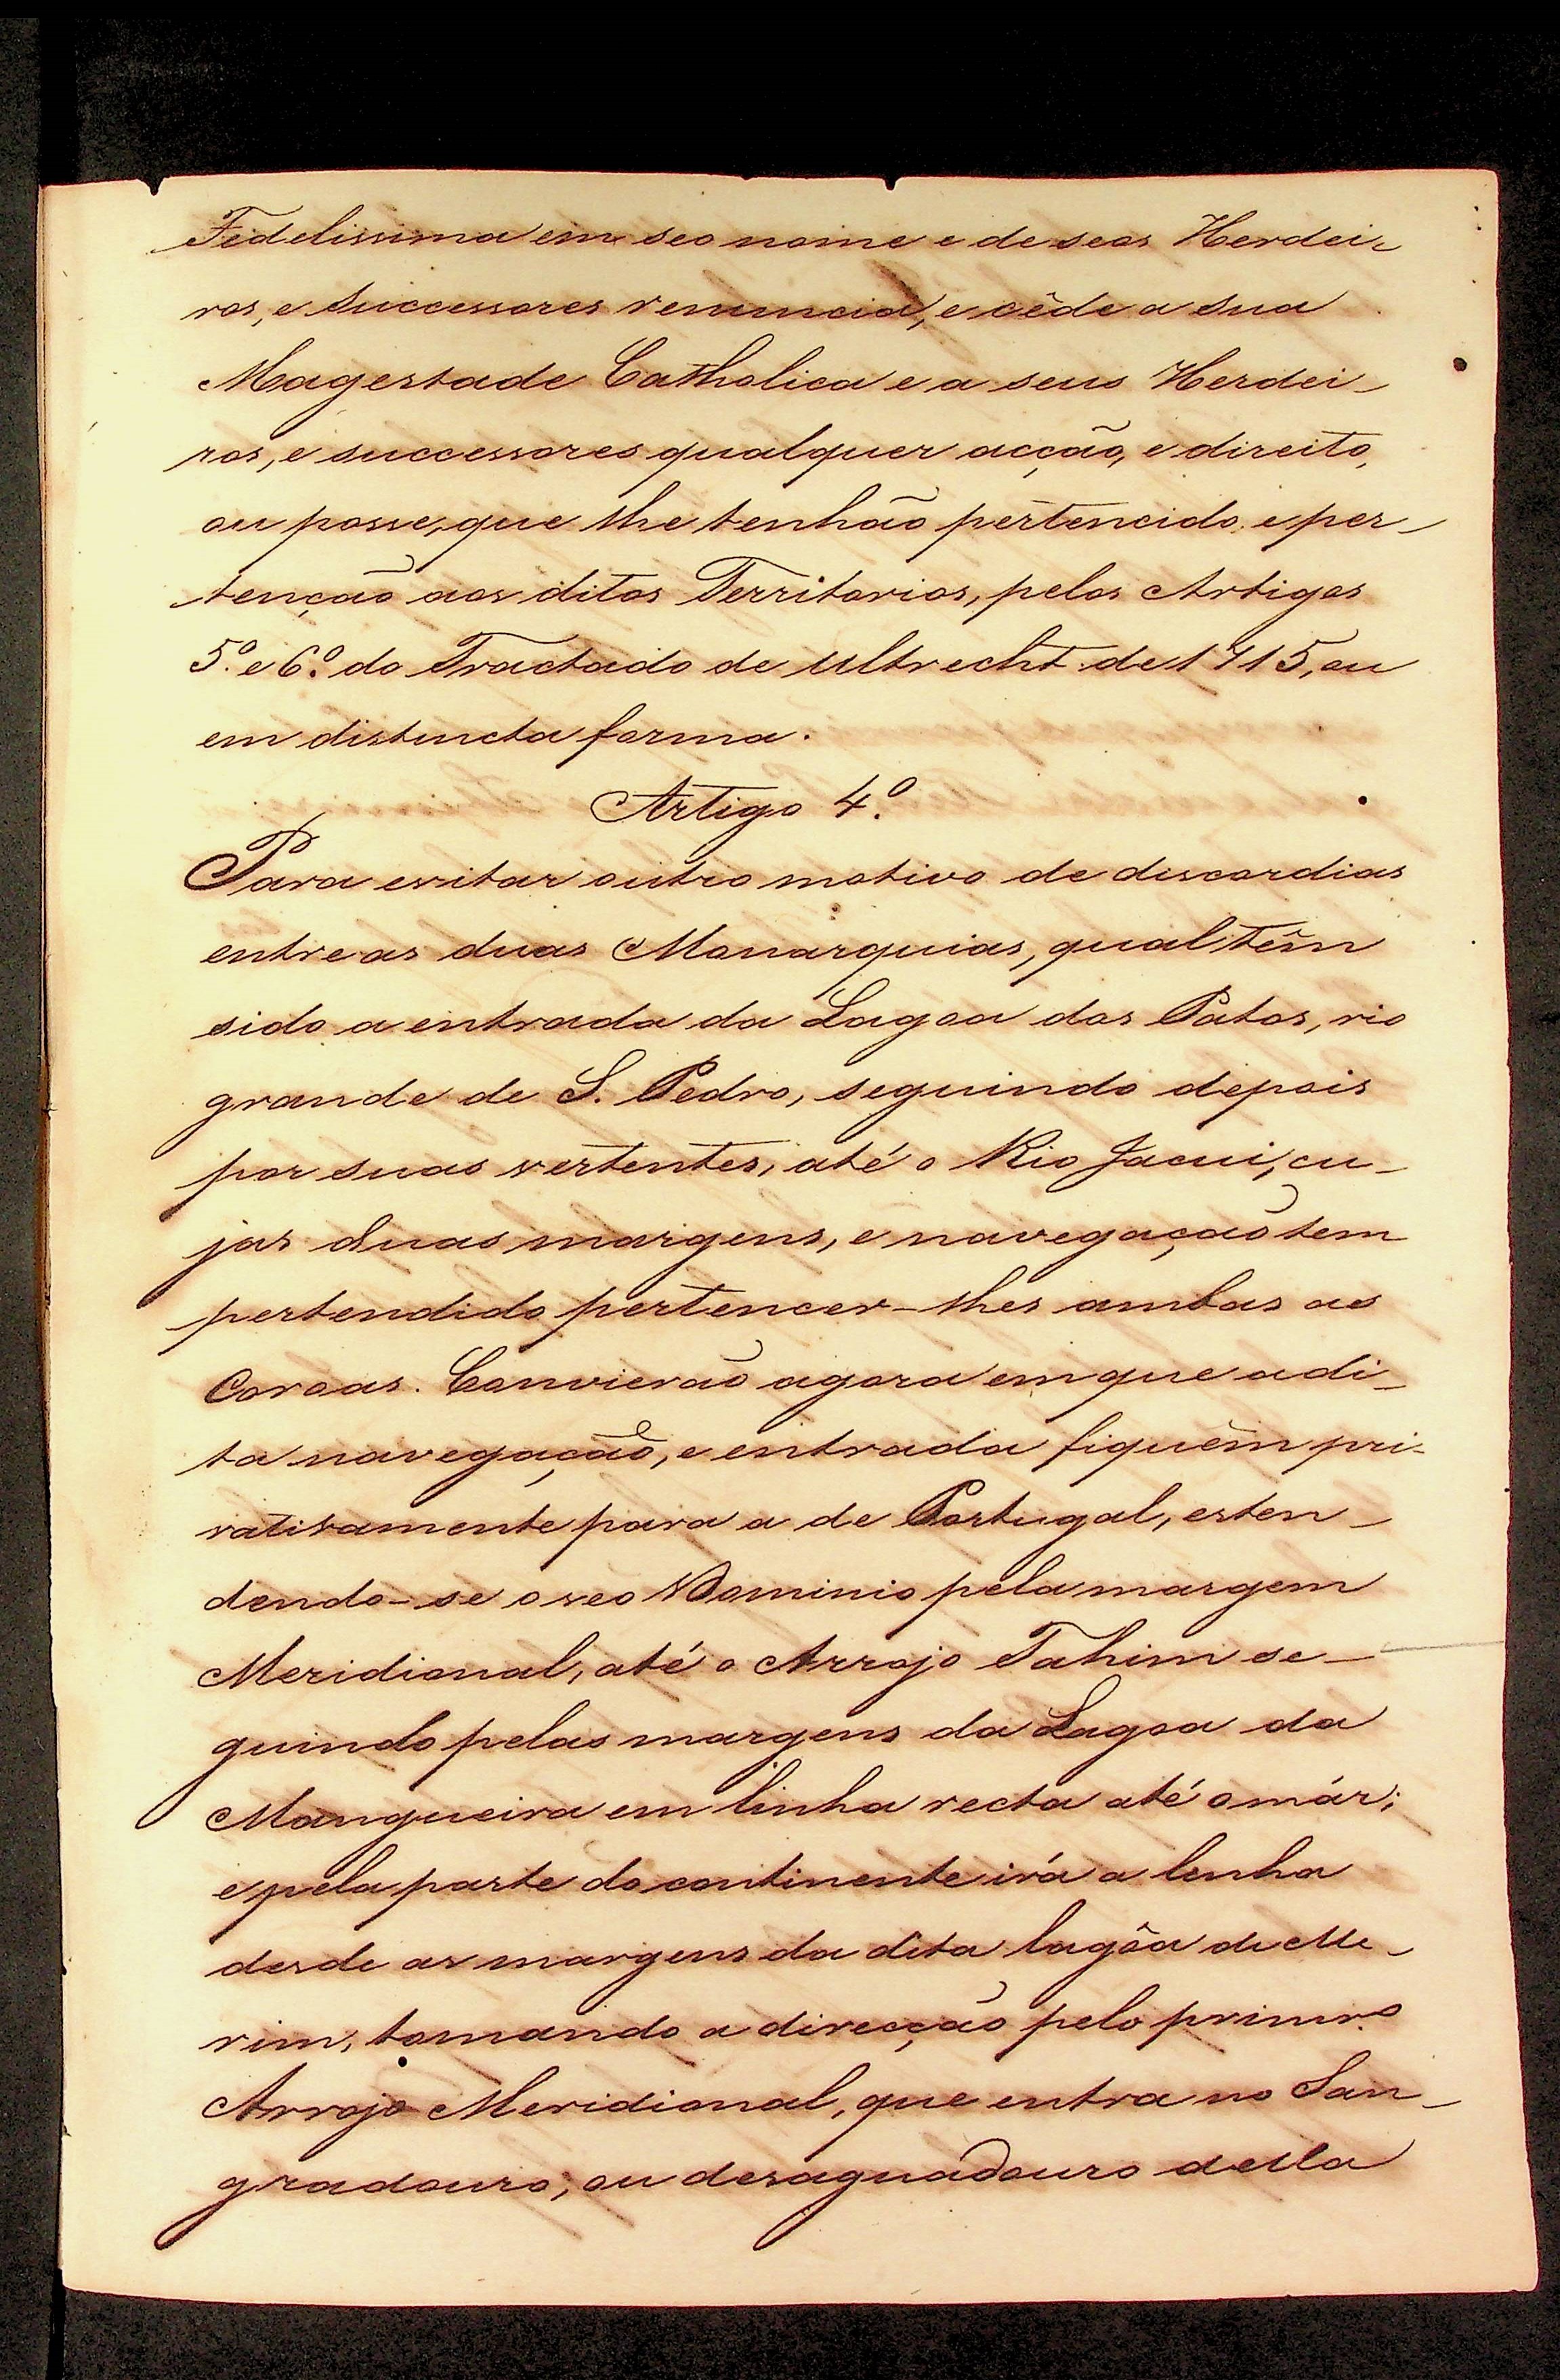 Fidelissima em seo nome e de seos Herdei-
ros, e Successores renuncia, e cêde a Sua
Magestade Catholica e a seus Herdei-
ros, e successores qualquer acção, e direito,
ou posse, que lhe tenhão pertencido e per-
tenção aos ditos Territorios, pelos Artigos
5º. e 6º. do Tractado de Ultrecht de 1715, ou
em distincta forma.
Artigo 4º.
Para evitar outro motivo de discordias
entre as duas Monarquias, qual têm
sido a entrada da Lagoa dos Patos, rio
grande de S. Pedro, seguindo depois
por suas vertentes, até o Rio Jacui, cu-
jas duas margens, e navegação tem
pertendido pertencer-lhes ambas as
Coroas. Convierão agora em que a di-
ta navegação, e entrada fiquêm pri-
vativamente para a de Portugal, esten-
dendo-se o seo Dominio pela margem
Meridional, até o Arrojo Tahim se-
guindo pelas margens da Lagoa da
Mangueira em linha recta até o már;
e pela parte do continente irá a linha
desde as margens da dita lagôa de Me-
rim, tomando a direcção pelo primrº.
Arrojo Meridional, que entra no San-
gradouro, ou desaguadouro della